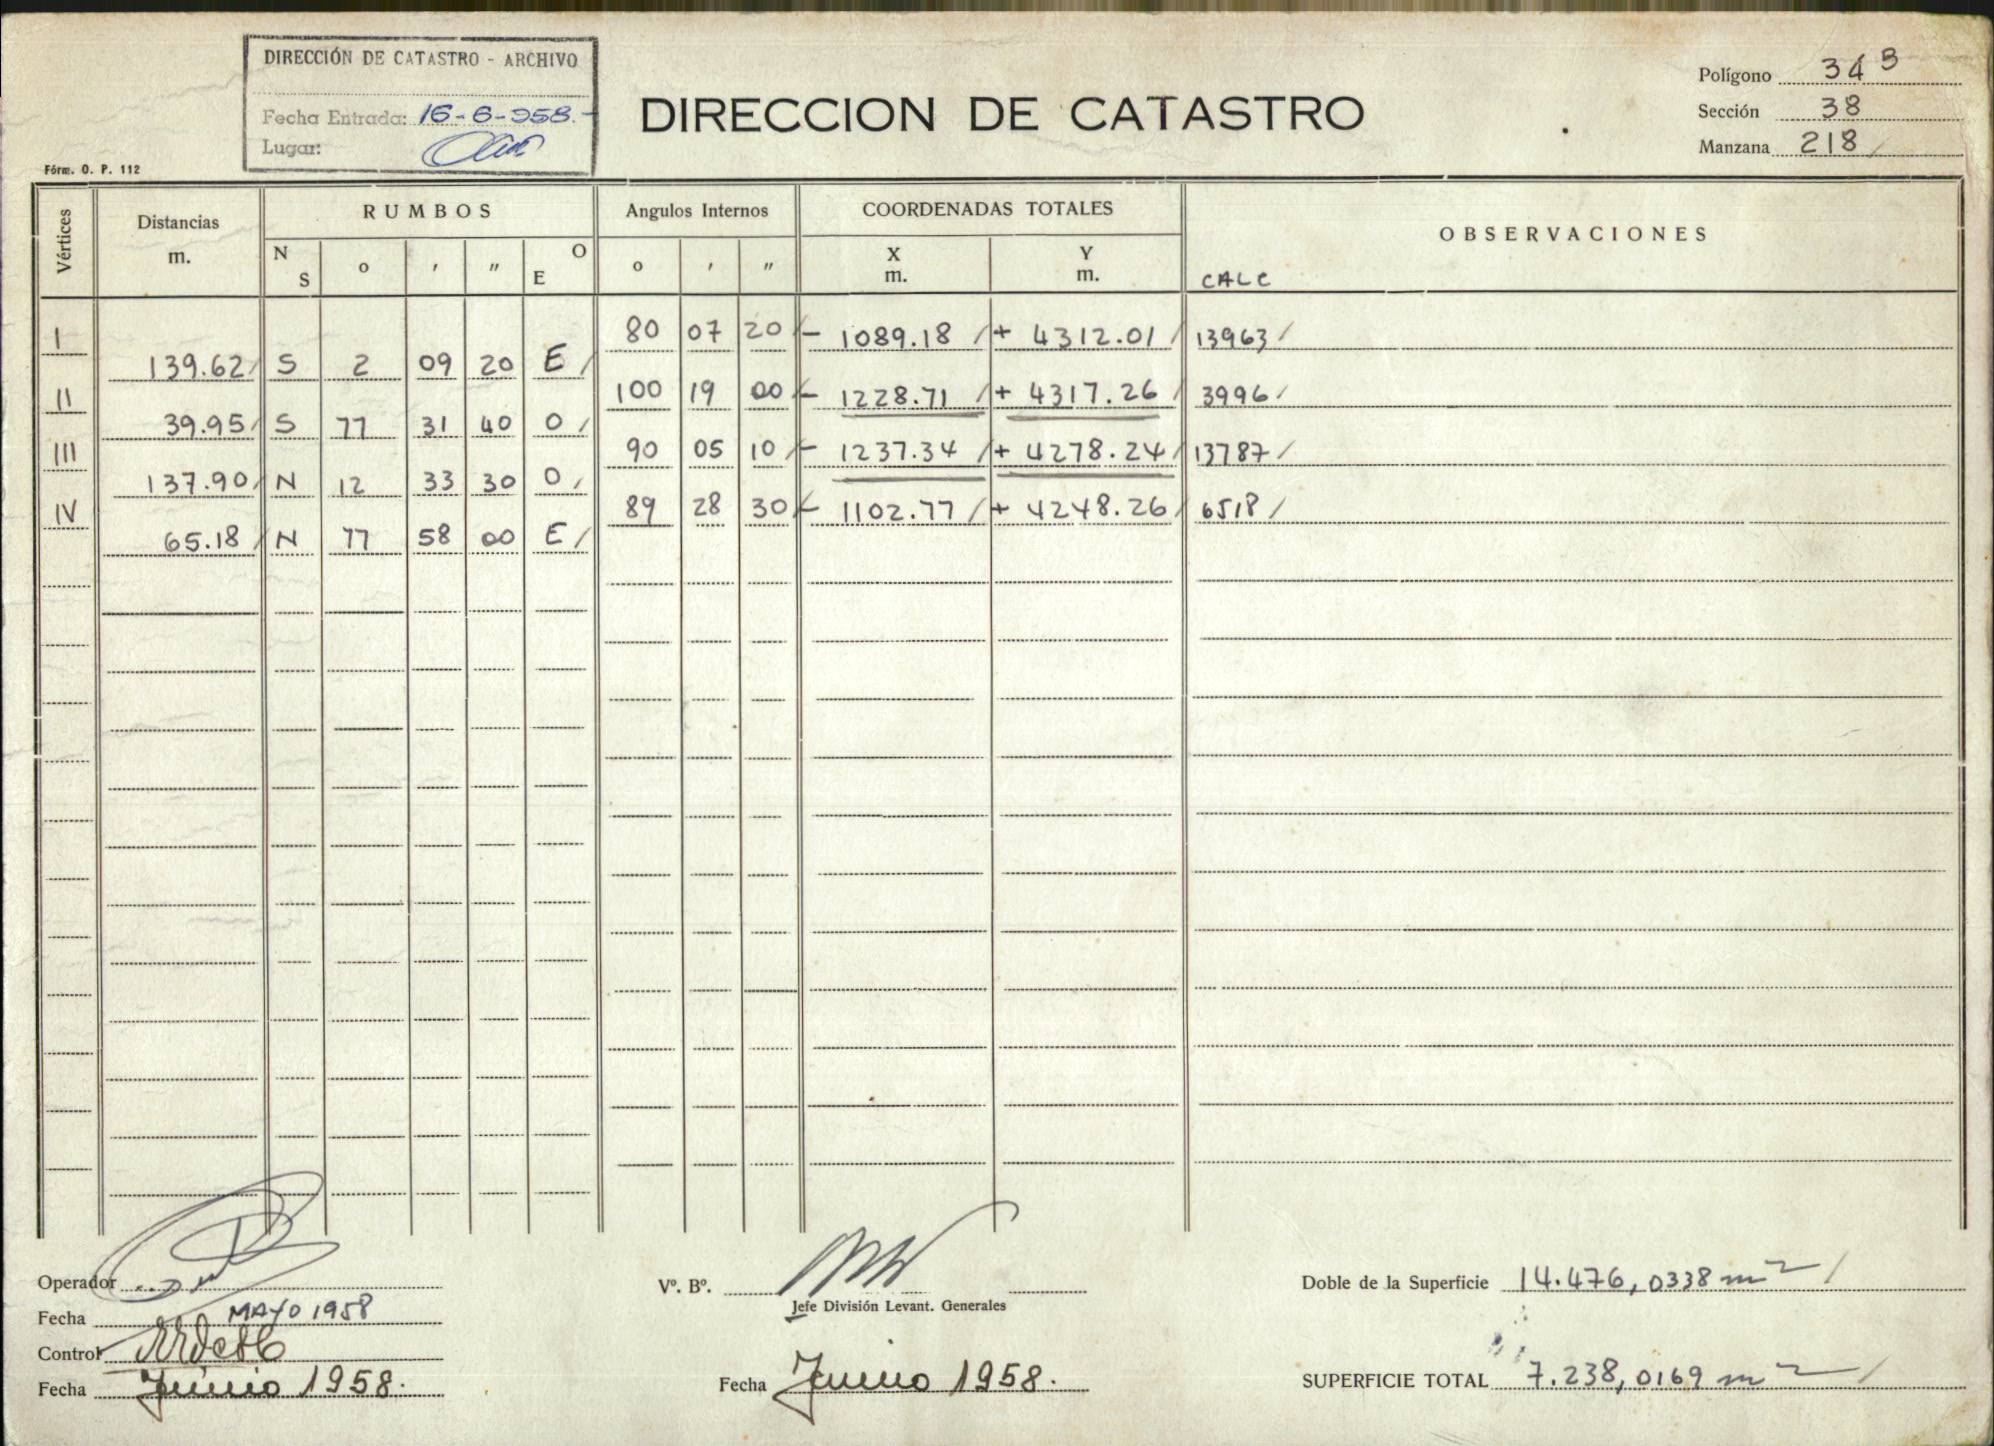 DIRECCIÓN DE CATASTRO - ARCHIVO
Fecha Entrada: 16-6-958.-
Lugar:
DIRECCION DE CATASTRO
Polígono 34 B
Sección 38
Manzana 218 /
Fórm. O. P. 112
Vértices Distancias m. RUMBOS Angulos Internos COORDENADAS TOTALES OBSERVACIONES
N S o ' " O E o ' " X m. Y m. CALC
I 80 07 20 / - 1089.18 / + 4312.01 / 13963 /
139.62 / S 2 09 20 E /
II 100 19 00 / - 1228.71 / + 4317.26 / 3996 /
39.95 / S 77 31 40 O /
III 90 05 10 / - 1237.34 / + 4278.24 / 13787 /
137.90 / N 12 33 30 O /
IV 89 28 30 / - 1102.77 / + 4248.26 / 6518 /
65.18 / N 77 58 00 E /
Operador
Fecha MAYO 1958
Control
Fecha Junio 1958.
Vº. Bº.
Jefe División Levant. Generales
Fecha Junio 1958.
Doble de la Superficie 14.476,0338 m2 /
SUPERFICIE TOTAL 7.238,0169 m2 /